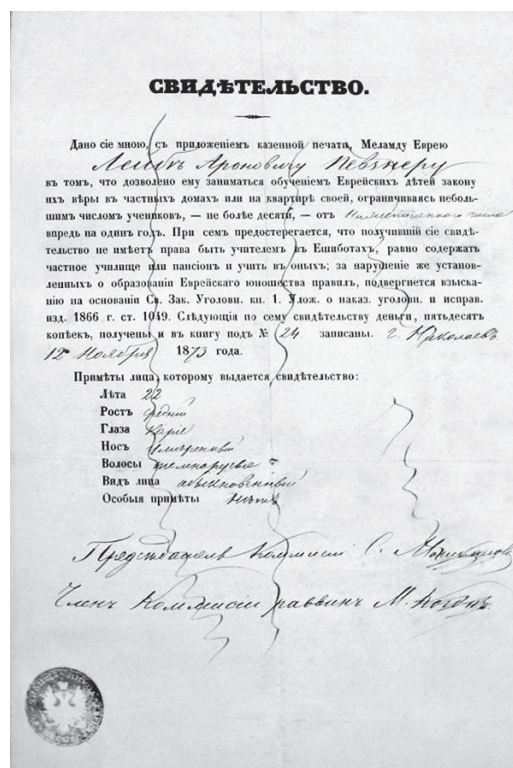 СВИДѢТЕЛЬСТВО.
Дано сіе мною, съ приложеніемъ казенной печати, Меламду Еврею
Лейбѣ Ароновичу Певзнеру
въ томъ, что дозволено ему заниматься обученіемъ Еврейскихъ дѣтей закону
ихъ вѣры въ частныхъ домахъ или на квартирѣ своей, ограничиваясь неболь-
шимъ числомъ учениковъ, — не болѣе десяти, — отъ нижеписаннаго числа
впредь на одинъ годъ. При семъ предостерегается, что получившій сіе свидѣ-
тельство не имѣетъ права быть учителемъ въ Ешиботахъ, равно содержать
частное училище или пансіонъ и учить въ оныхъ; за нарушеніе же установ-
ленныхъ о образованіи Еврейскаго юношества правилъ, подвергнется взыска-
нію на основаніи Св. Зак. Уголовн. кн. 1. Улож. о наказ. уголовн. и исправ.
изд. 1866 г. ст. 1049. Слѣдующія по сему свидѣтельству деньги, пятьдесятъ
копѣекъ, получены и въ книгу подъ № 24 записаны. г. Николаевъ
12 Ноября 1873 года.
Примѣты лица, которому выдается свидѣтельство:
Лѣта 22
Ростъ средній
Глаза каріе
Носъ умѣренный
Волосы темнорусые
Видъ лица обыкновенный
Особыя примѣты нѣтъ
Предсѣдатель Коммисіи С.
Членъ Коммисіи раввинъ М. Когонъ